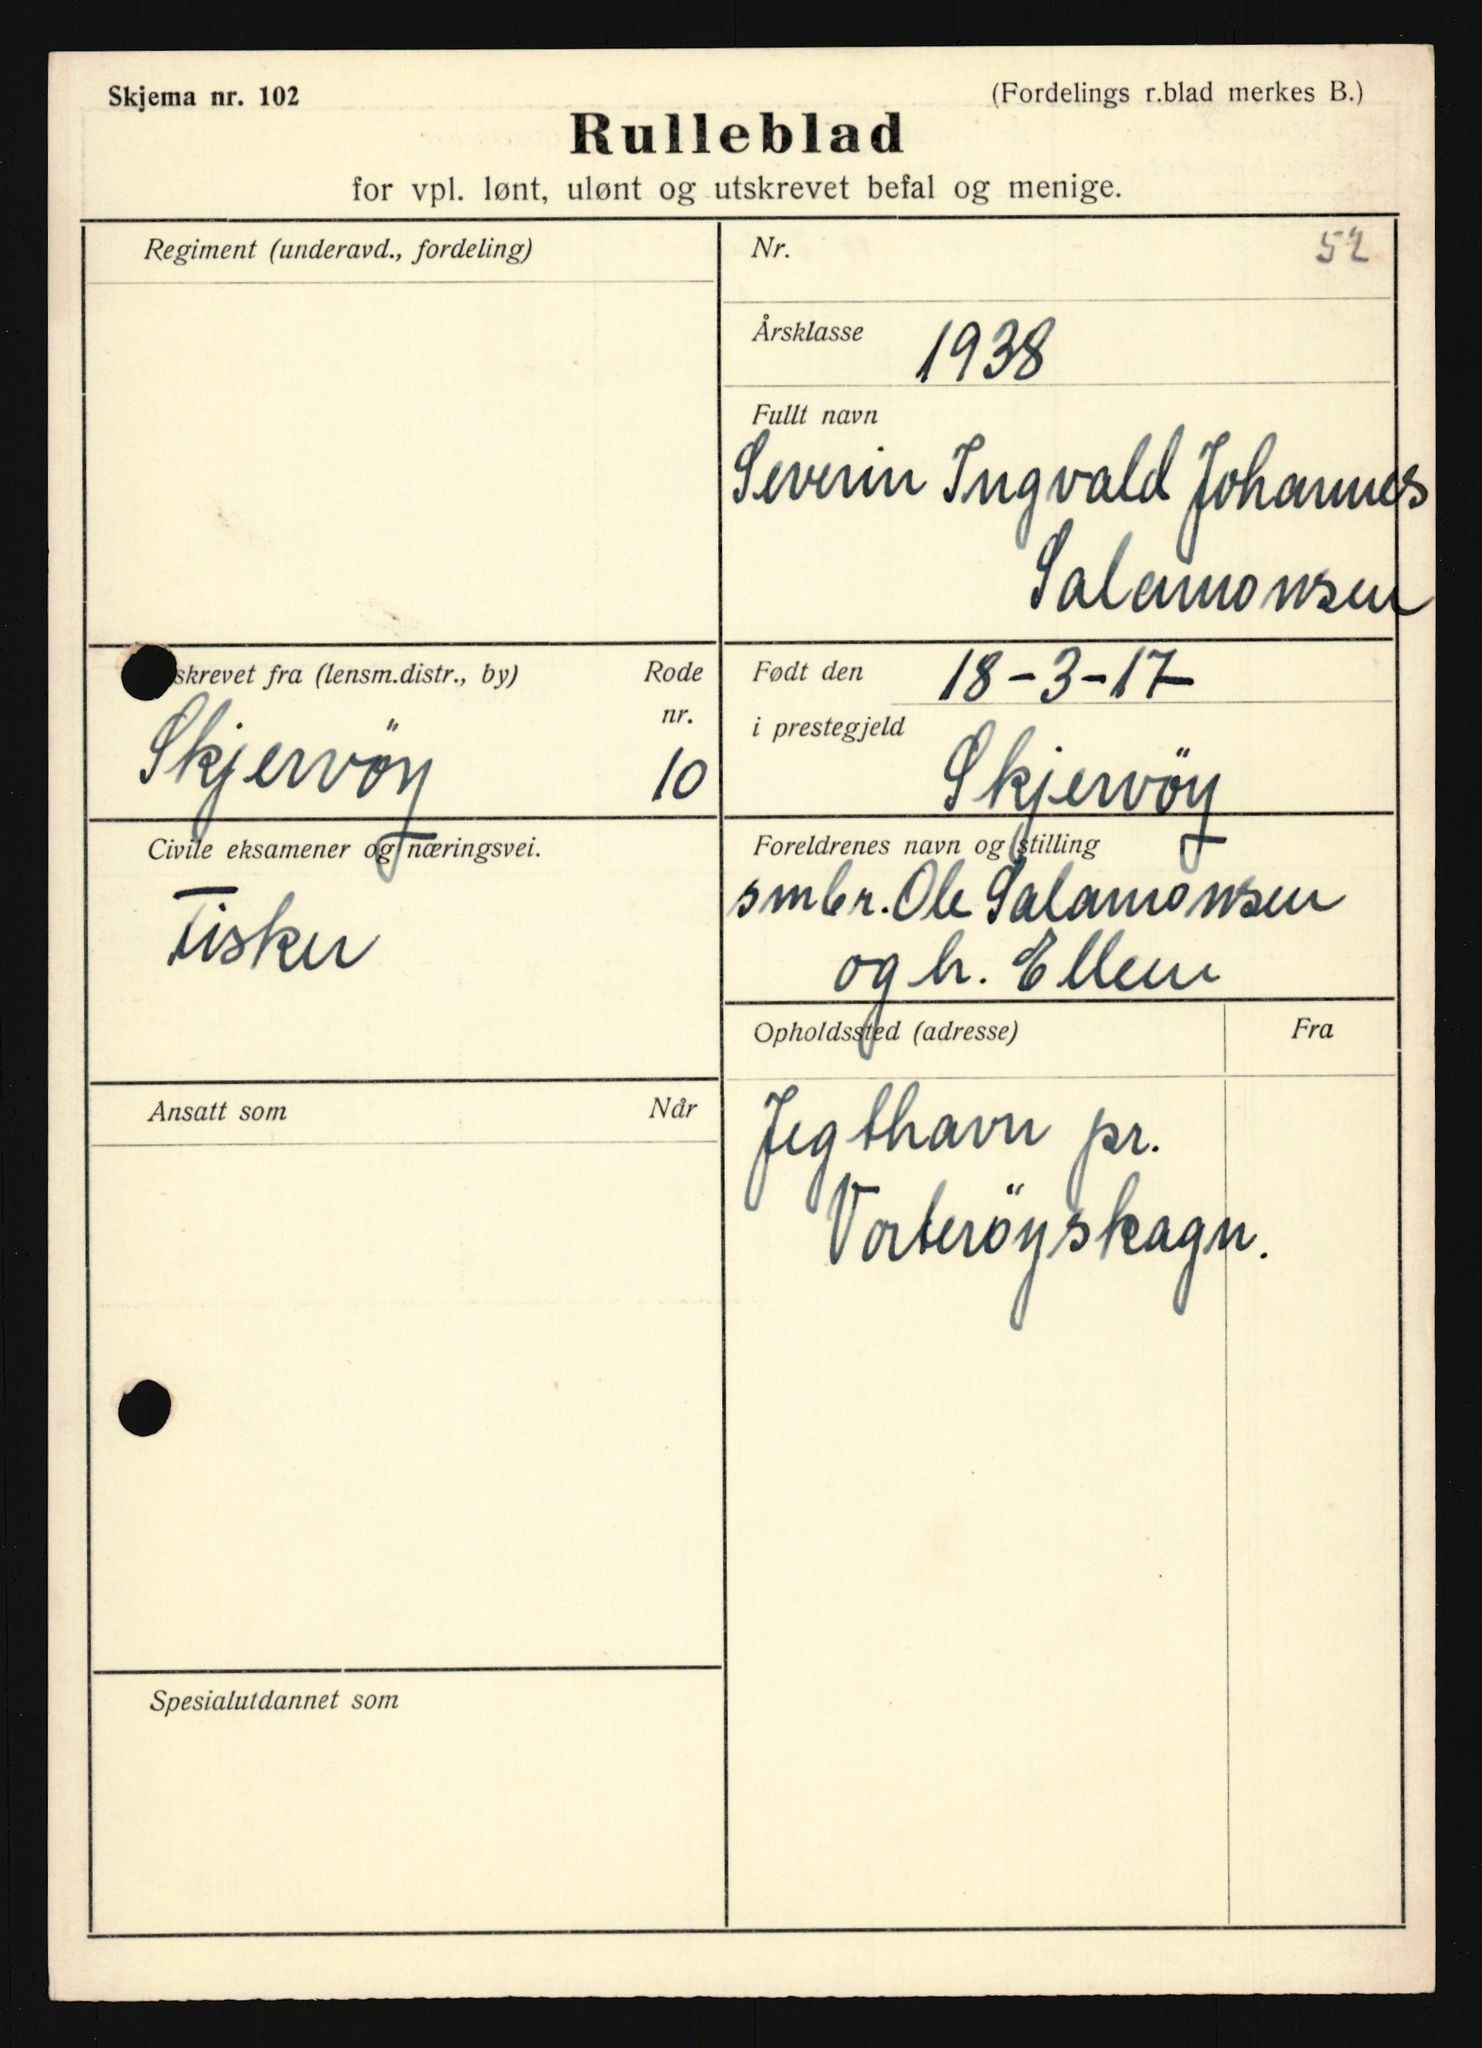 Skjema nr. 102
(Fordelings r.blad merkes B.)
Rulleblad
for vpl. lønt, ulønt og utskrevet befal og menige.
Regiment (underavd., fordeling)
Nr.
52
Årsklasse
1938
Fullt navn
Severin Ingvald Johannes
Salamonsen
skrevet fra (lensm.distr., by)
Rode
nr.
Skjervöy
10
Født den
18-3-17
i prestegjeld
Skjervöy
Civile eksamener og næringsvei.
Fisker
Foreldrenes navn og stilling
smbr. Ole Salamonsen
og h. Ellen
Opholdssted (adresse)
Fra
Jegthavn pr.
Vorteröyskagn.
Ansatt som
Når
Spesialutdannet som